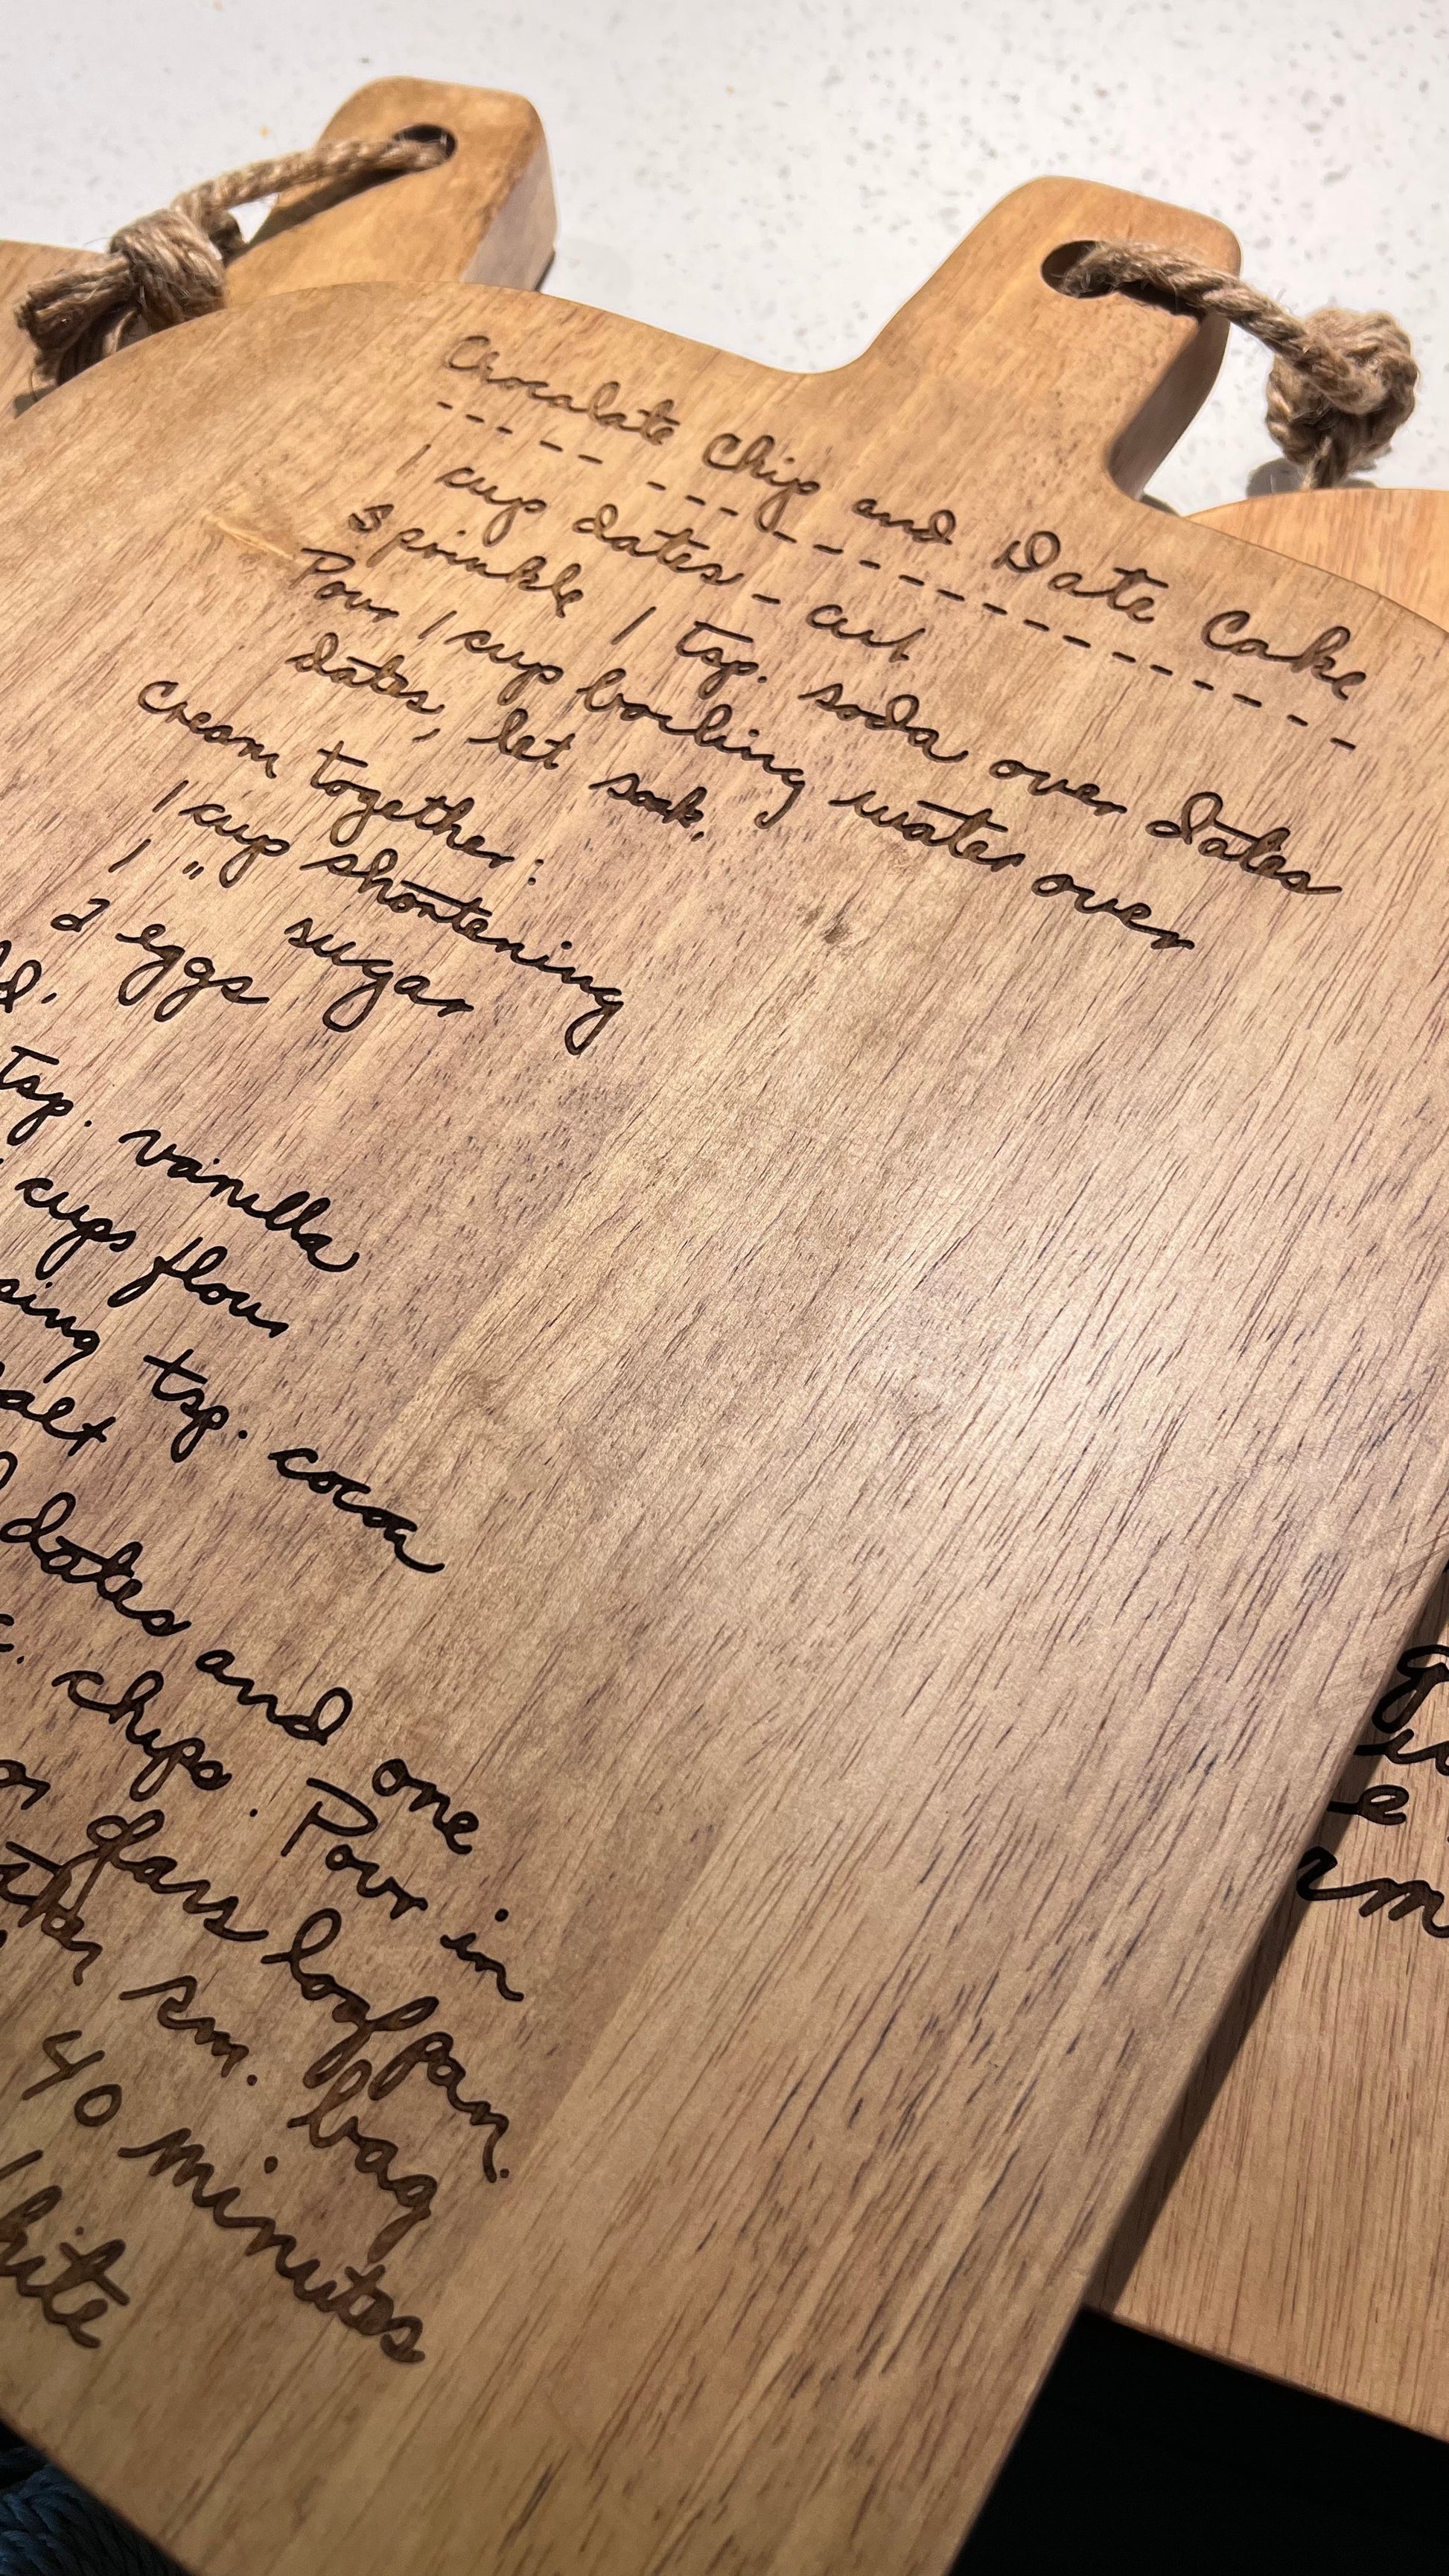 Chocolate Chip and Date Cake
1 cup dates - cut
Sprinkle 1 tsp. soda over dates
Pour 1 cup boiling water over
dates, let soak.
Cream together:
1 cup shortening
1 " sugar
2 eggs
tsp. vanilla
cups flour
tsp. cocoa
dates and one
chips. Pour in
glass loafpan.
sm. bag
40 minutes